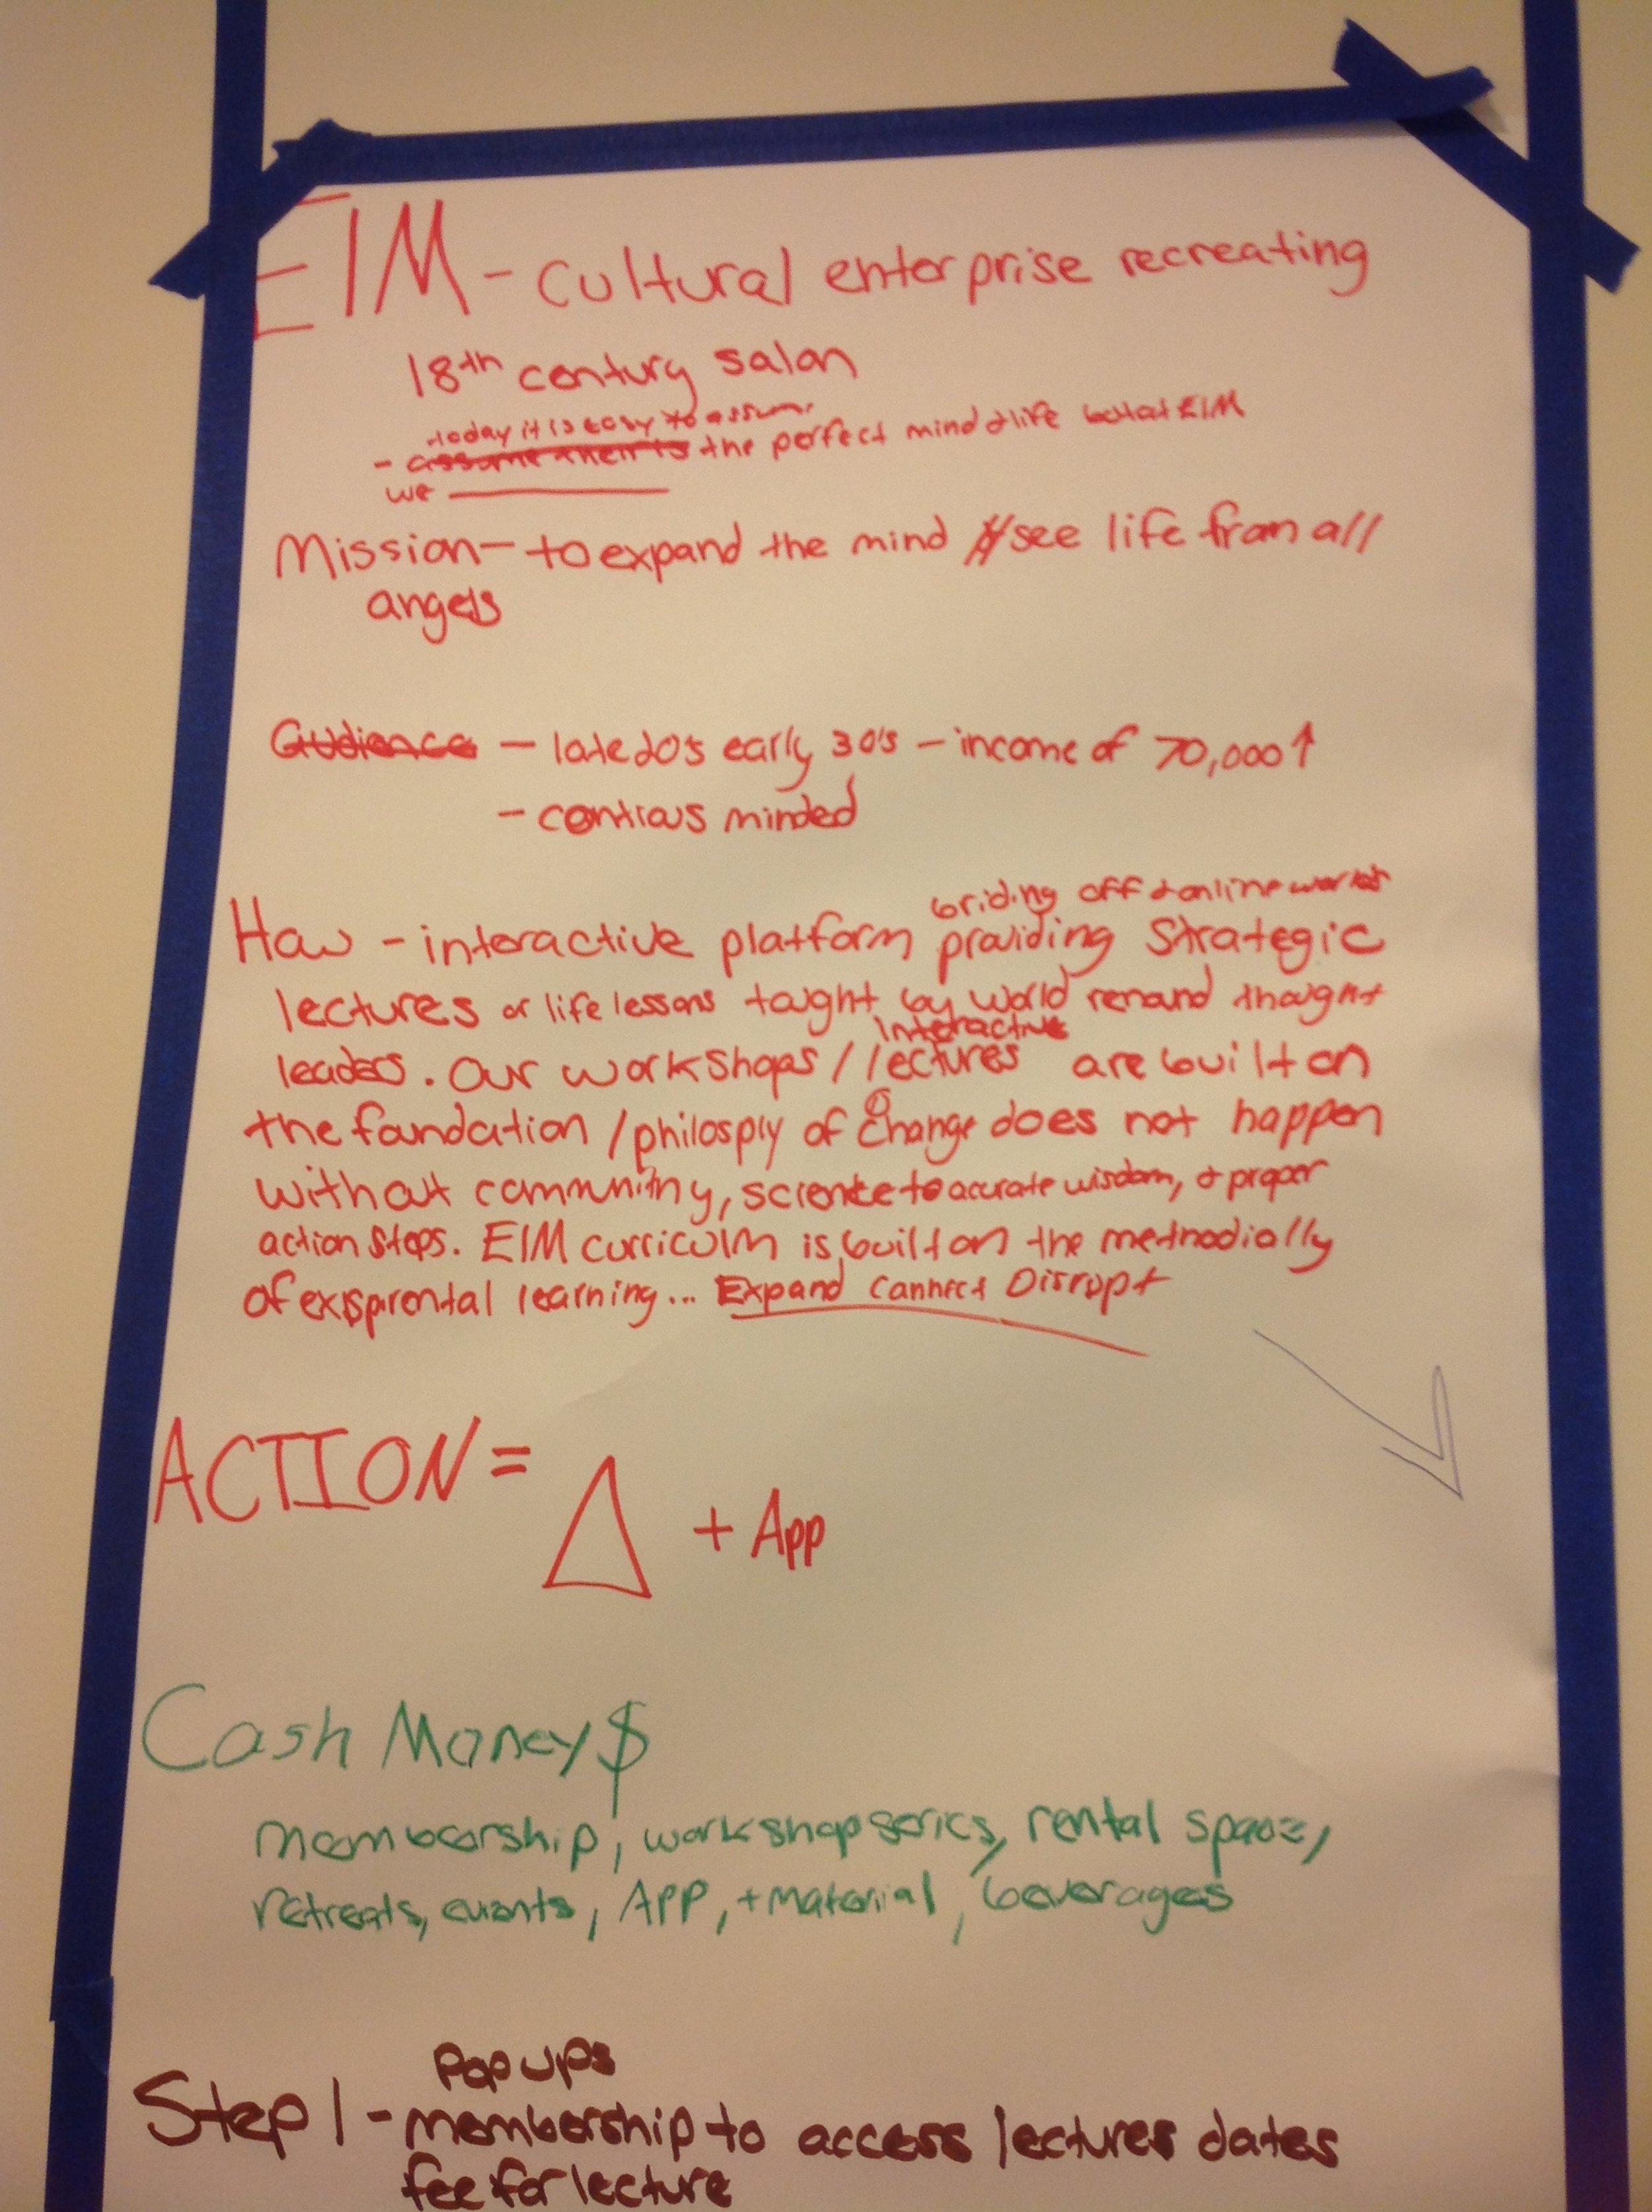 EIM - cultural enterprise recreating
18th century salon
today it is easy to assume
- the perfect mind & life but at EIM
we
Mission - to expand the mind // see life from all
angels
Audience - late 20's early 30's - income of 70,000↑
- contious minded
briding off & online worlds
How - interactive platform providing strategic
lectures or life lessons taught by world renand thought
interactive
leaders. Our workshops / lectures are built on
the foundation / philosply of change does not happen
without community, science to accurate wisdom, & proper
action steps. EIM curriculm is built on the methodially
of exisprental learning... Expand Connect Disrupt
ACTION = Δ + App
Cash Money $
membership, workshop series, rental space,
retreats, events, APP, + material, beverages
Pop ups
Step 1 - membership to access lectures dates
fee for lecture